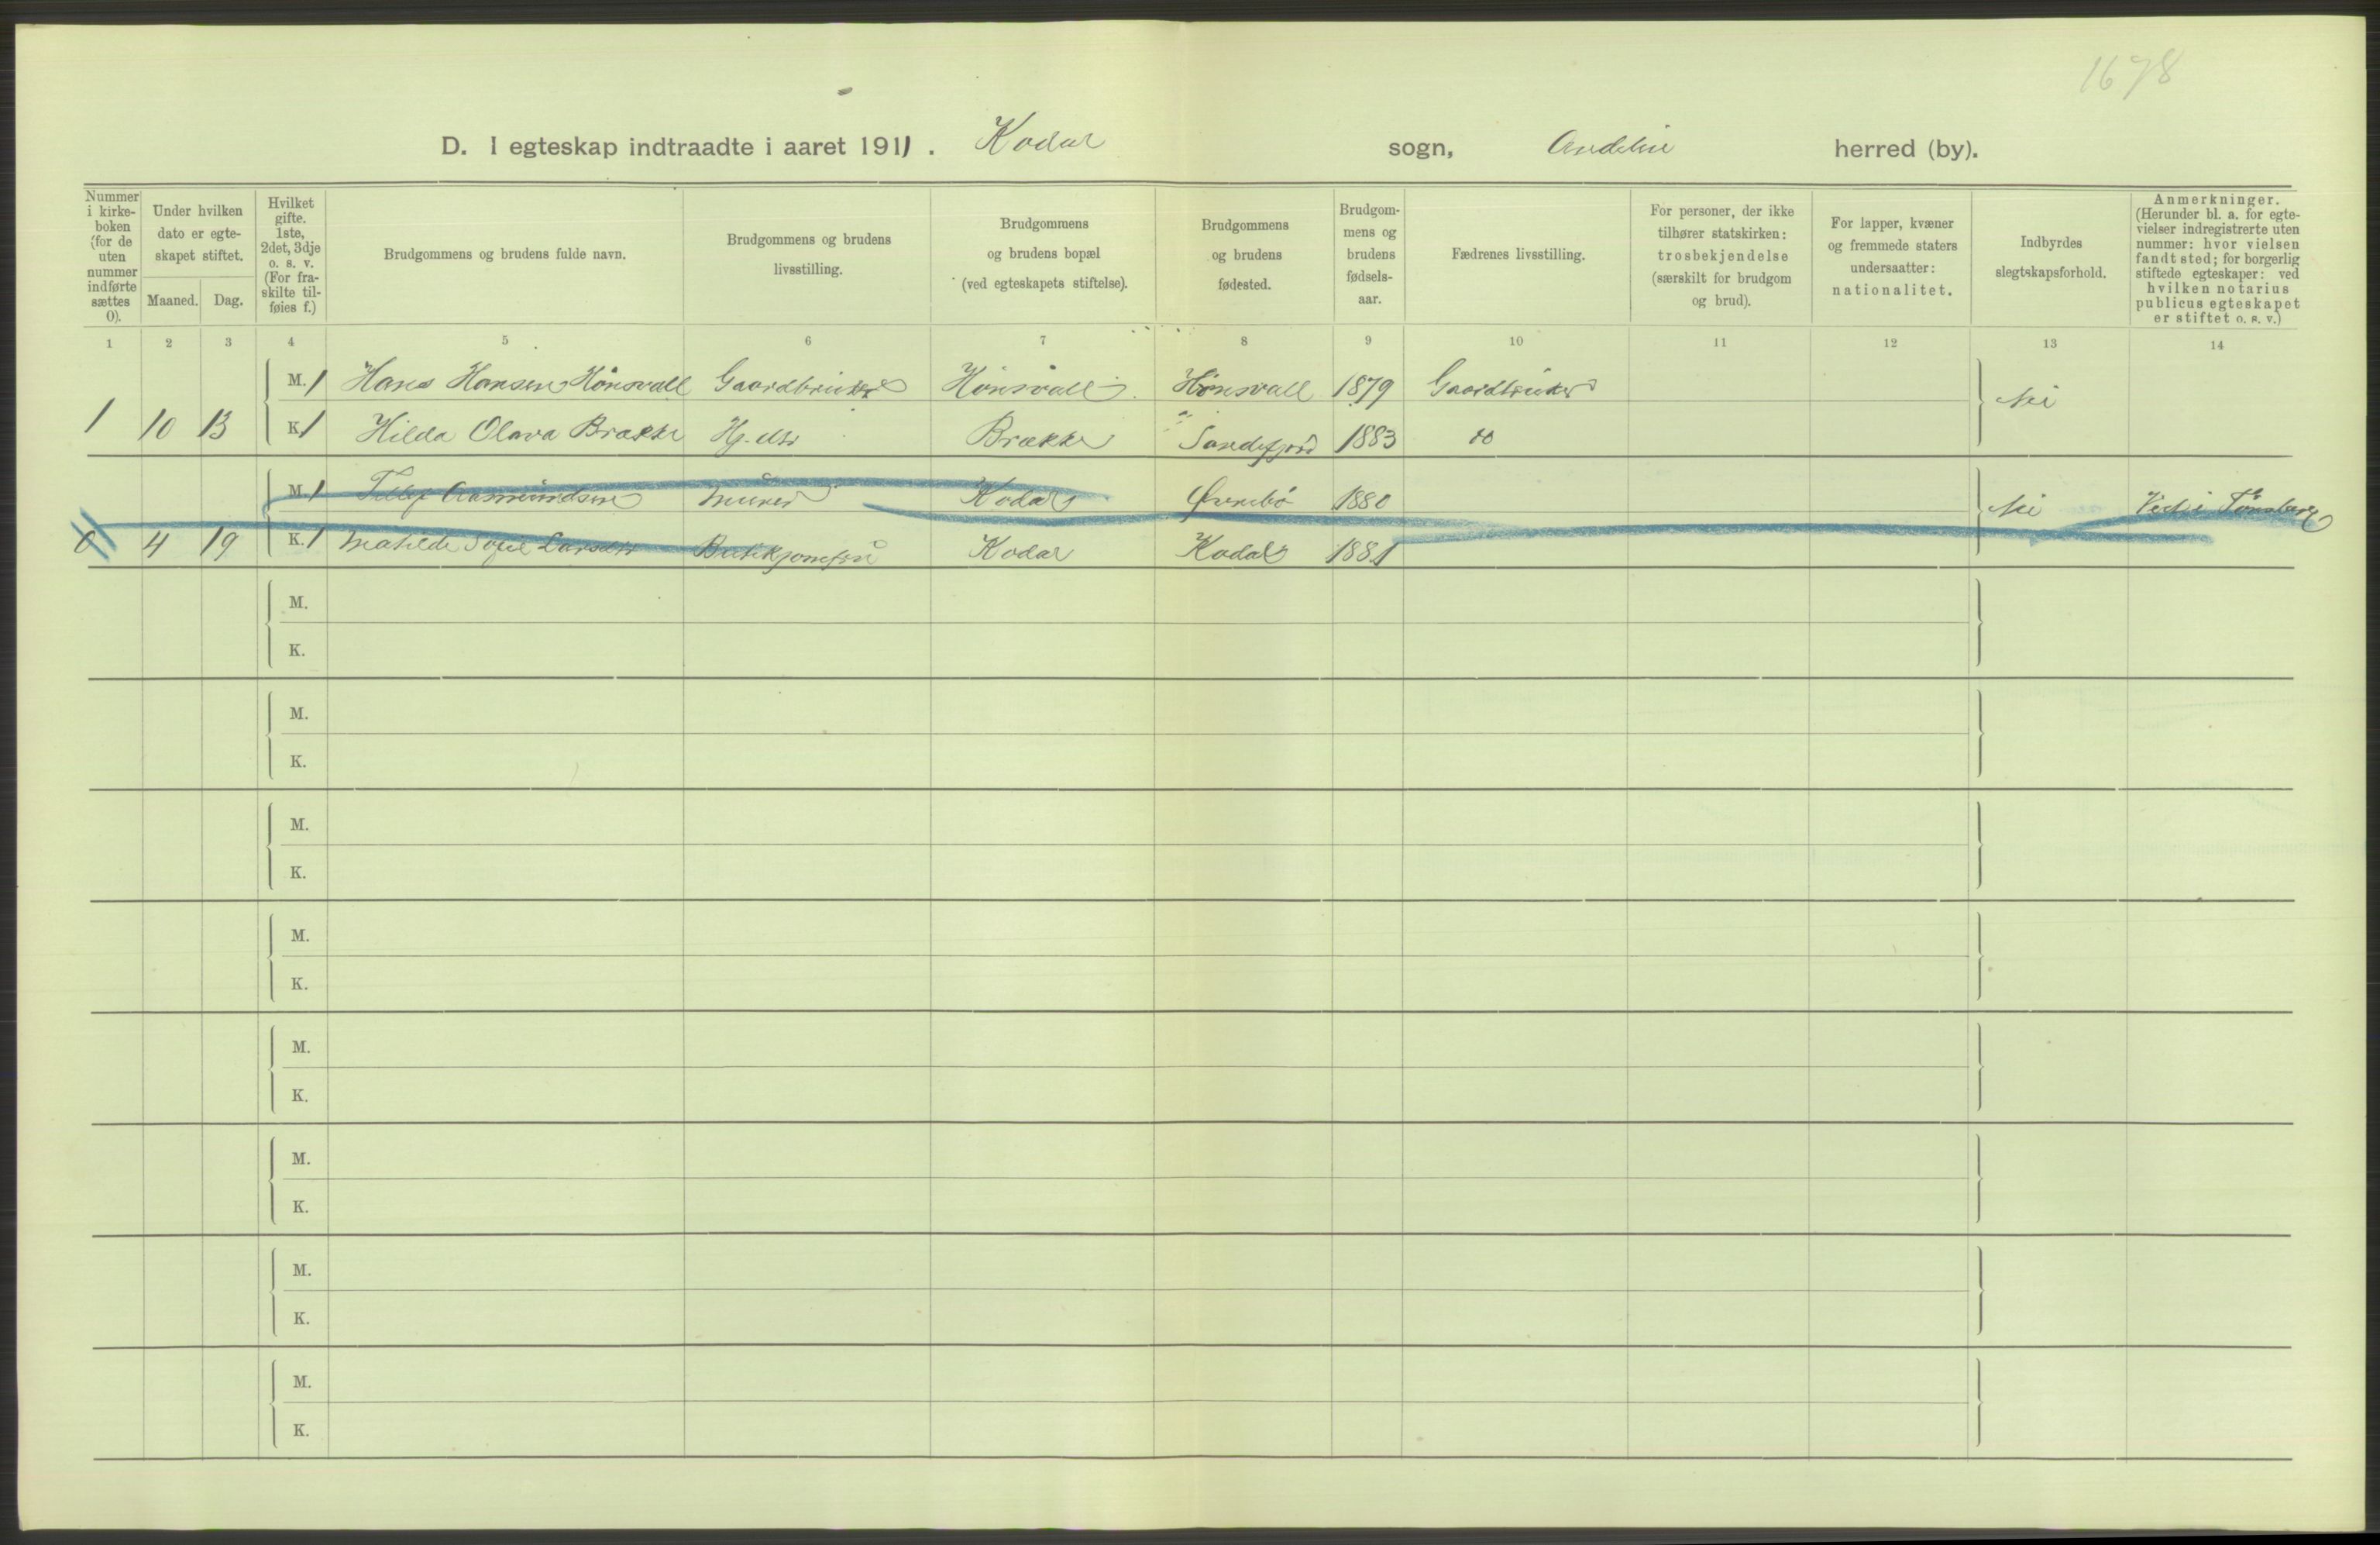 1678
D. I egteskap indtraadte i aaret 1911. Kodal sogn, Andebu herred (by).
Nummer i kirke-boken (for de uten nummer indførte sættes 0).
Under hvilken dato er egte-skapet stiftet.
Maaned. Dag.
Hvilket gifte. 1ste, 2det, 3dje o. s. v. (For fra-skilte til-føies f.)
Brudgommens og brudens fulde navn.
Brudgommens og brudens livsstilling.
Brudgommens og brudens bopæl (ved egteskapets stiftelse).
Brudgommens og brudens fødested.
Brudgom-mens og brudens fødsels-aar.
Fædrenes livsstilling.
For personer, der ikke tilhører statskirken: trosbekjendelse (særskilt for brudgom og brud).
For lapper, kvæner og fremmede staters undersaatter: nationalitet.
Indbyrdes slegtskapsforhold.
Anmerkninger. (Herunder bl. a. for egte-vielser indregistrerte uten nummer: hvor vielsen fandt sted; for borgerlig stiftede egteskaper: ved hvilken notarius publicus egteskapet er stiftet o. s. v.)
1 2 3 4 5 6 7 8 9 10 11 12 13 14
M. 1 Hans Hansen Hönsvall Gaardbruker Hönsvall Hönsvall 1879 Gaardbruker Nei
1 10 13 K. 1 Hilda Olava Brække Hj. dtr Brække Sandefjord 1883 do
M. 1 Tellef Aasmundsen murer Kodal Øvrebö 1880 Nei Viet i Tönsberg
0 4 19 K. 1 Matilde Sofie Larsen Butikjomfru Kodal Kodal 1881
M.
K.
M.
K.
M.
K.
M.
K.
M.
K.
M.
K.
M.
K.
M.
K.